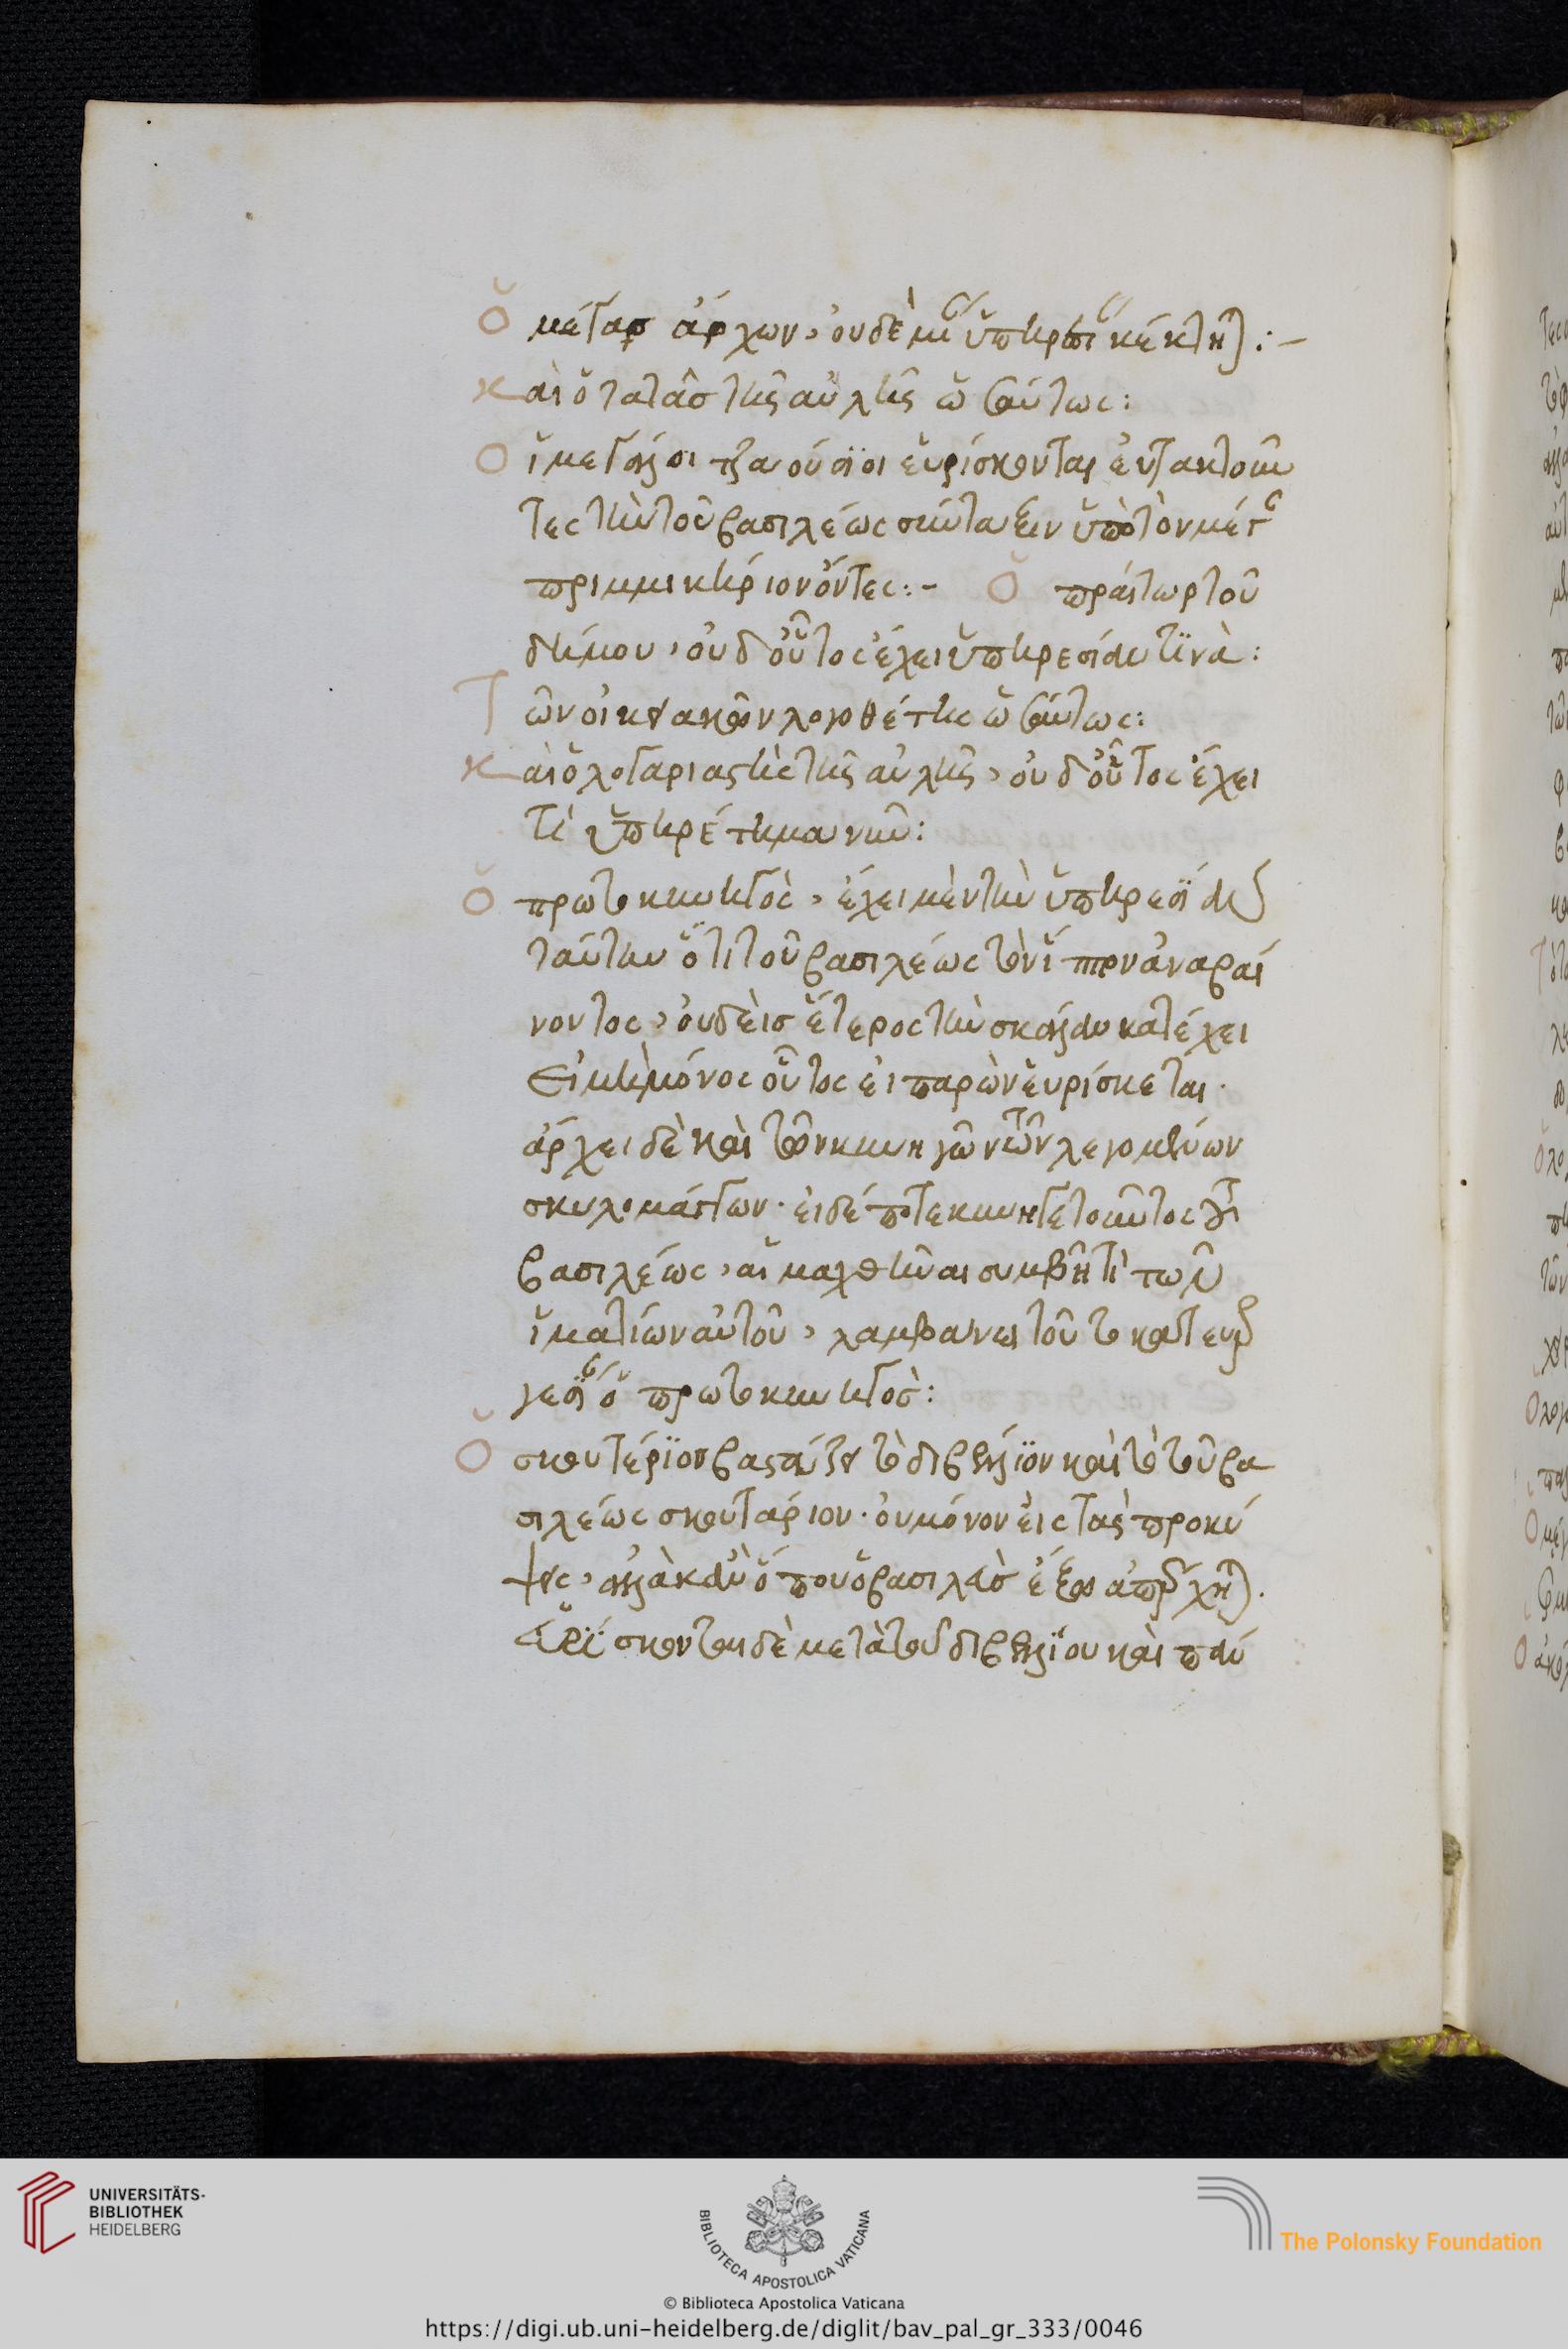 Ὁ μέγας ἄρχων, οὐδεμίαν ὑπηρεσίαν κέκτηται:-
καὶ ὁ τατᾶς τῆς αὐλῆς ὡσαύτως:
Οἱ μεγάλοι τζαούσιοι εὑρίσκονται εὐτακτοῦν
τες τὴν τοῦ βασιλέως σύνταξιν ὑπὸ τὸν μέγαν
πριμμικήριον ὄντες:- Ὁ πραίτωρ τοῦ
δήμου, οὐδ οὗτος ἔχει ὑπηρεσίαν τινὰ:
Τῶν οἰκειακῶν λογοθέτης ὡσαύτως:
καὶ ὁ λογαριαστὴς τῆς αὐλῆς, οὐδ οὗτος ἔχει
τί ὑπηρέτημα νῦν:
Ὁ πρωτοκυνηγὸς, ἔχει μὲν τὴν ὑπηρεσίαν
ταύτην ὅτι τοῦ βασιλέως τὸν ἵππον ἀναβαί
νοντος, οὐδεὶς ἕτερος τὴν σκάλαν κατέχει
Εἰ μὴ μόνος οὗτος εἰ παρὼν εὑρίσκεται.
ἄρχει δὲ καὶ τῶν κυνηγῶν τῶν λεγομένων
σκυλομάγγων. εἰ δέ ποτε κυνηγετοῦντος τοῦ
βασιλέως, αἱμαχθῆναι συμβῆ τὶ τῶν
ἱματίων αὐτοῦ, λαμβάνει τοῦτο κατ ευερ
γεσίαν ὁ πρωτοκυνηγὸς:
Ὁ σκουτέριος βαστάζει τὸ διβέλλιον καὶ τὸ τοῦ βα
σιλέως σκουτάριον. οὐ μόνον εἰς τὰς προκύ
ψεις, ἀλλὰ κἂν ὅπου ὁ βασιλεὺς ἔξω ἀπέρχηται.
Εὑρίσκονται δὲ μετὰ τοῦ διβελλίου καὶ πάν
UNIVERSITÄTS-
BIBLIOTHEK
HEIDELBERG
BIBLIOTECA APOSTOLICA VATICANA
The Polonsky Foundation
© Biblioteca Apostolica Vaticana
https://digi.ub.uni-heidelberg.de/diglit/bav_pal_gr_333/0046